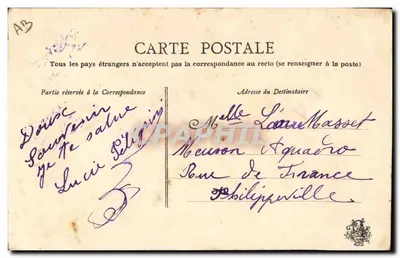 AB
CARTE POSTALE
Tous les pays étrangers n'acceptent pas la correspondance au recto (se renseigner à la poste)
Partie réservée à la Correspondance
Adresse du Destinataire
Doux
Souvenir
Je te salue
Lucie
Melle Masset
Meuson Aquadro
Rue de France
Philippeville